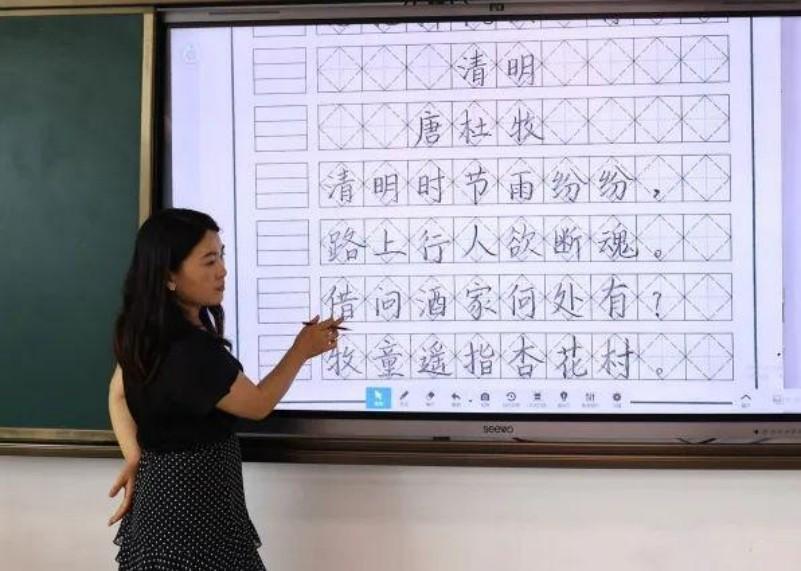 清明
唐杜牧
清明时节雨纷纷，
路上行人欲断魂。
借问酒家何处有？
牧童遥指杏花村。
seewo